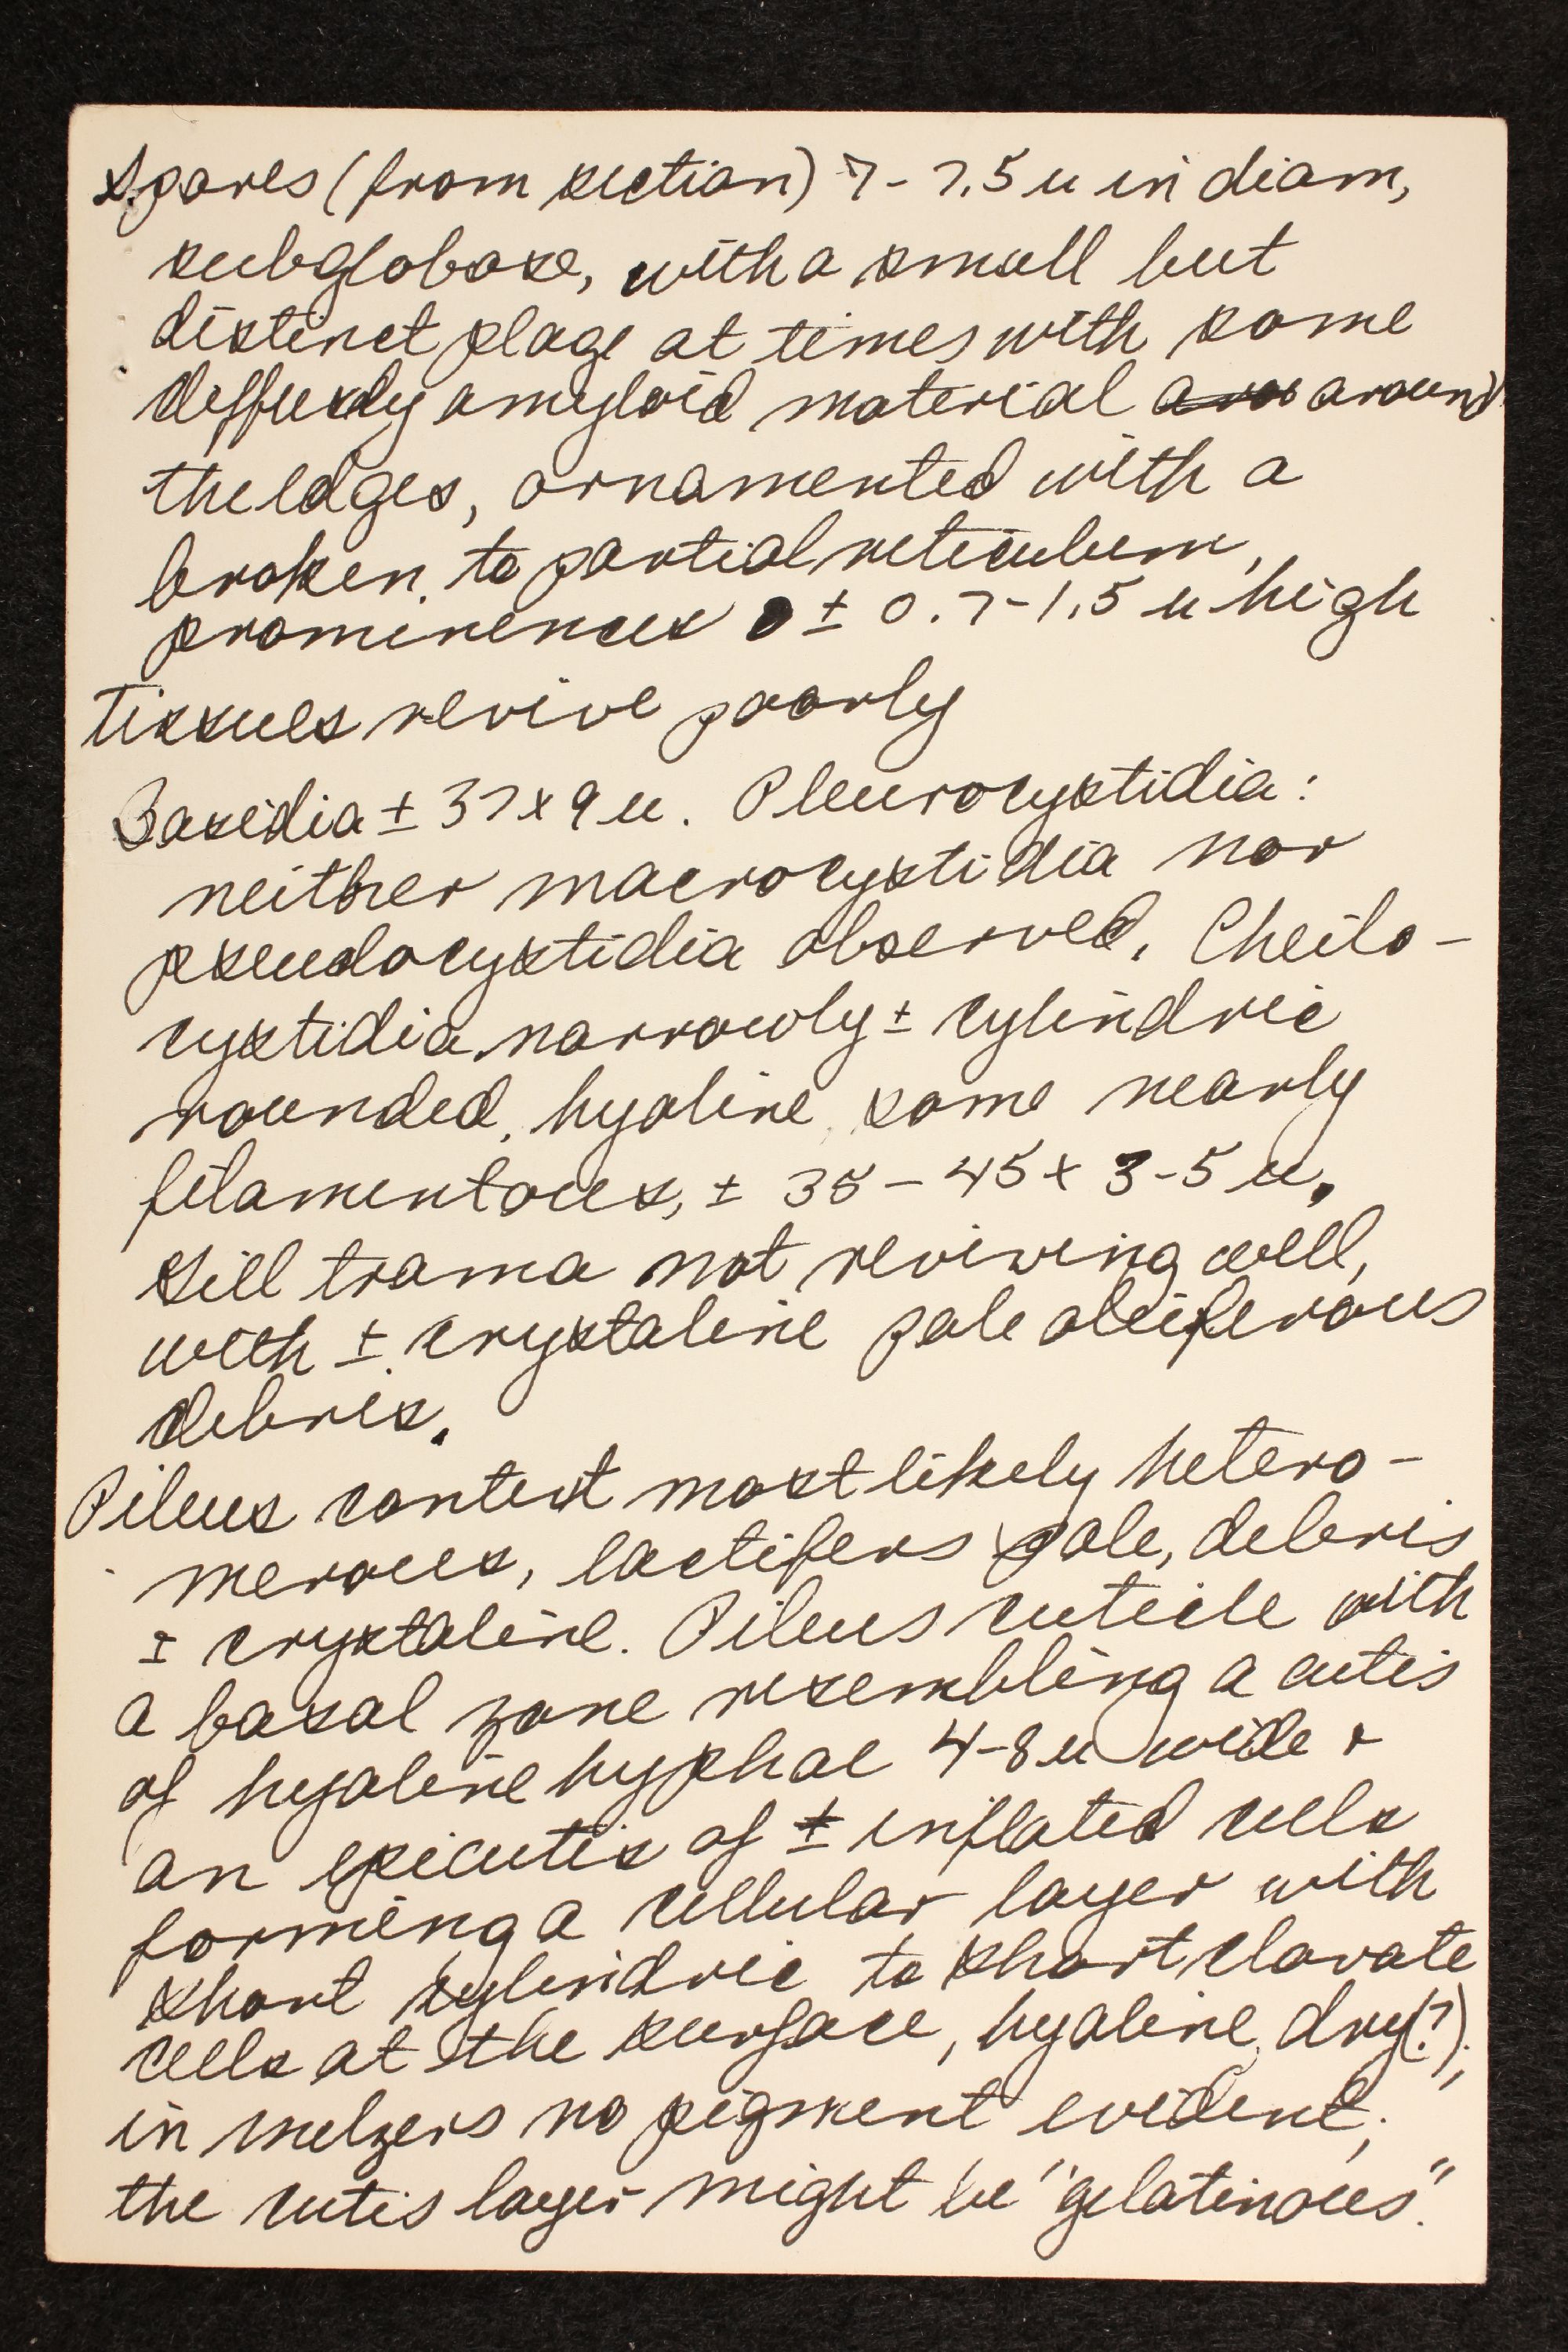 Spores (from section) 7-7.5 u in diam,
subglobose, with a small but
distinct plage at times with some
diffusely amyloid material aro around
the edges, ornamented with a
broken to partial reticulum,
prominences ± 0.7-1.5 u high
Tissues revive poorly
Basidia ± 37 x 9 u. Pleurocystidia:
neither macrocystidia nor
pseudocystidia observed. Cheilo-
cystidia narrowly ± cylindric
rounded, hyaline, some nearly
filamentous, ± 35-45 x 3-5 u.
Gill trama not reviving well,
with ± crystaline pale oleiferous
debris.
Pileus context most likely hetero-
merous, lactifers pale, debris
± crystaline. Pileus cuticle with
a basal zone resembling a cutis
of hyaline hyphae 4-8 u wide &
an epicutis of ± inflated cells
forming a cellular layer with
short cylindric to short clavate
cells at the surface, hyaline, dry(?);
in melzers no pigment evident;
the cutis layer might be "gelatinous".